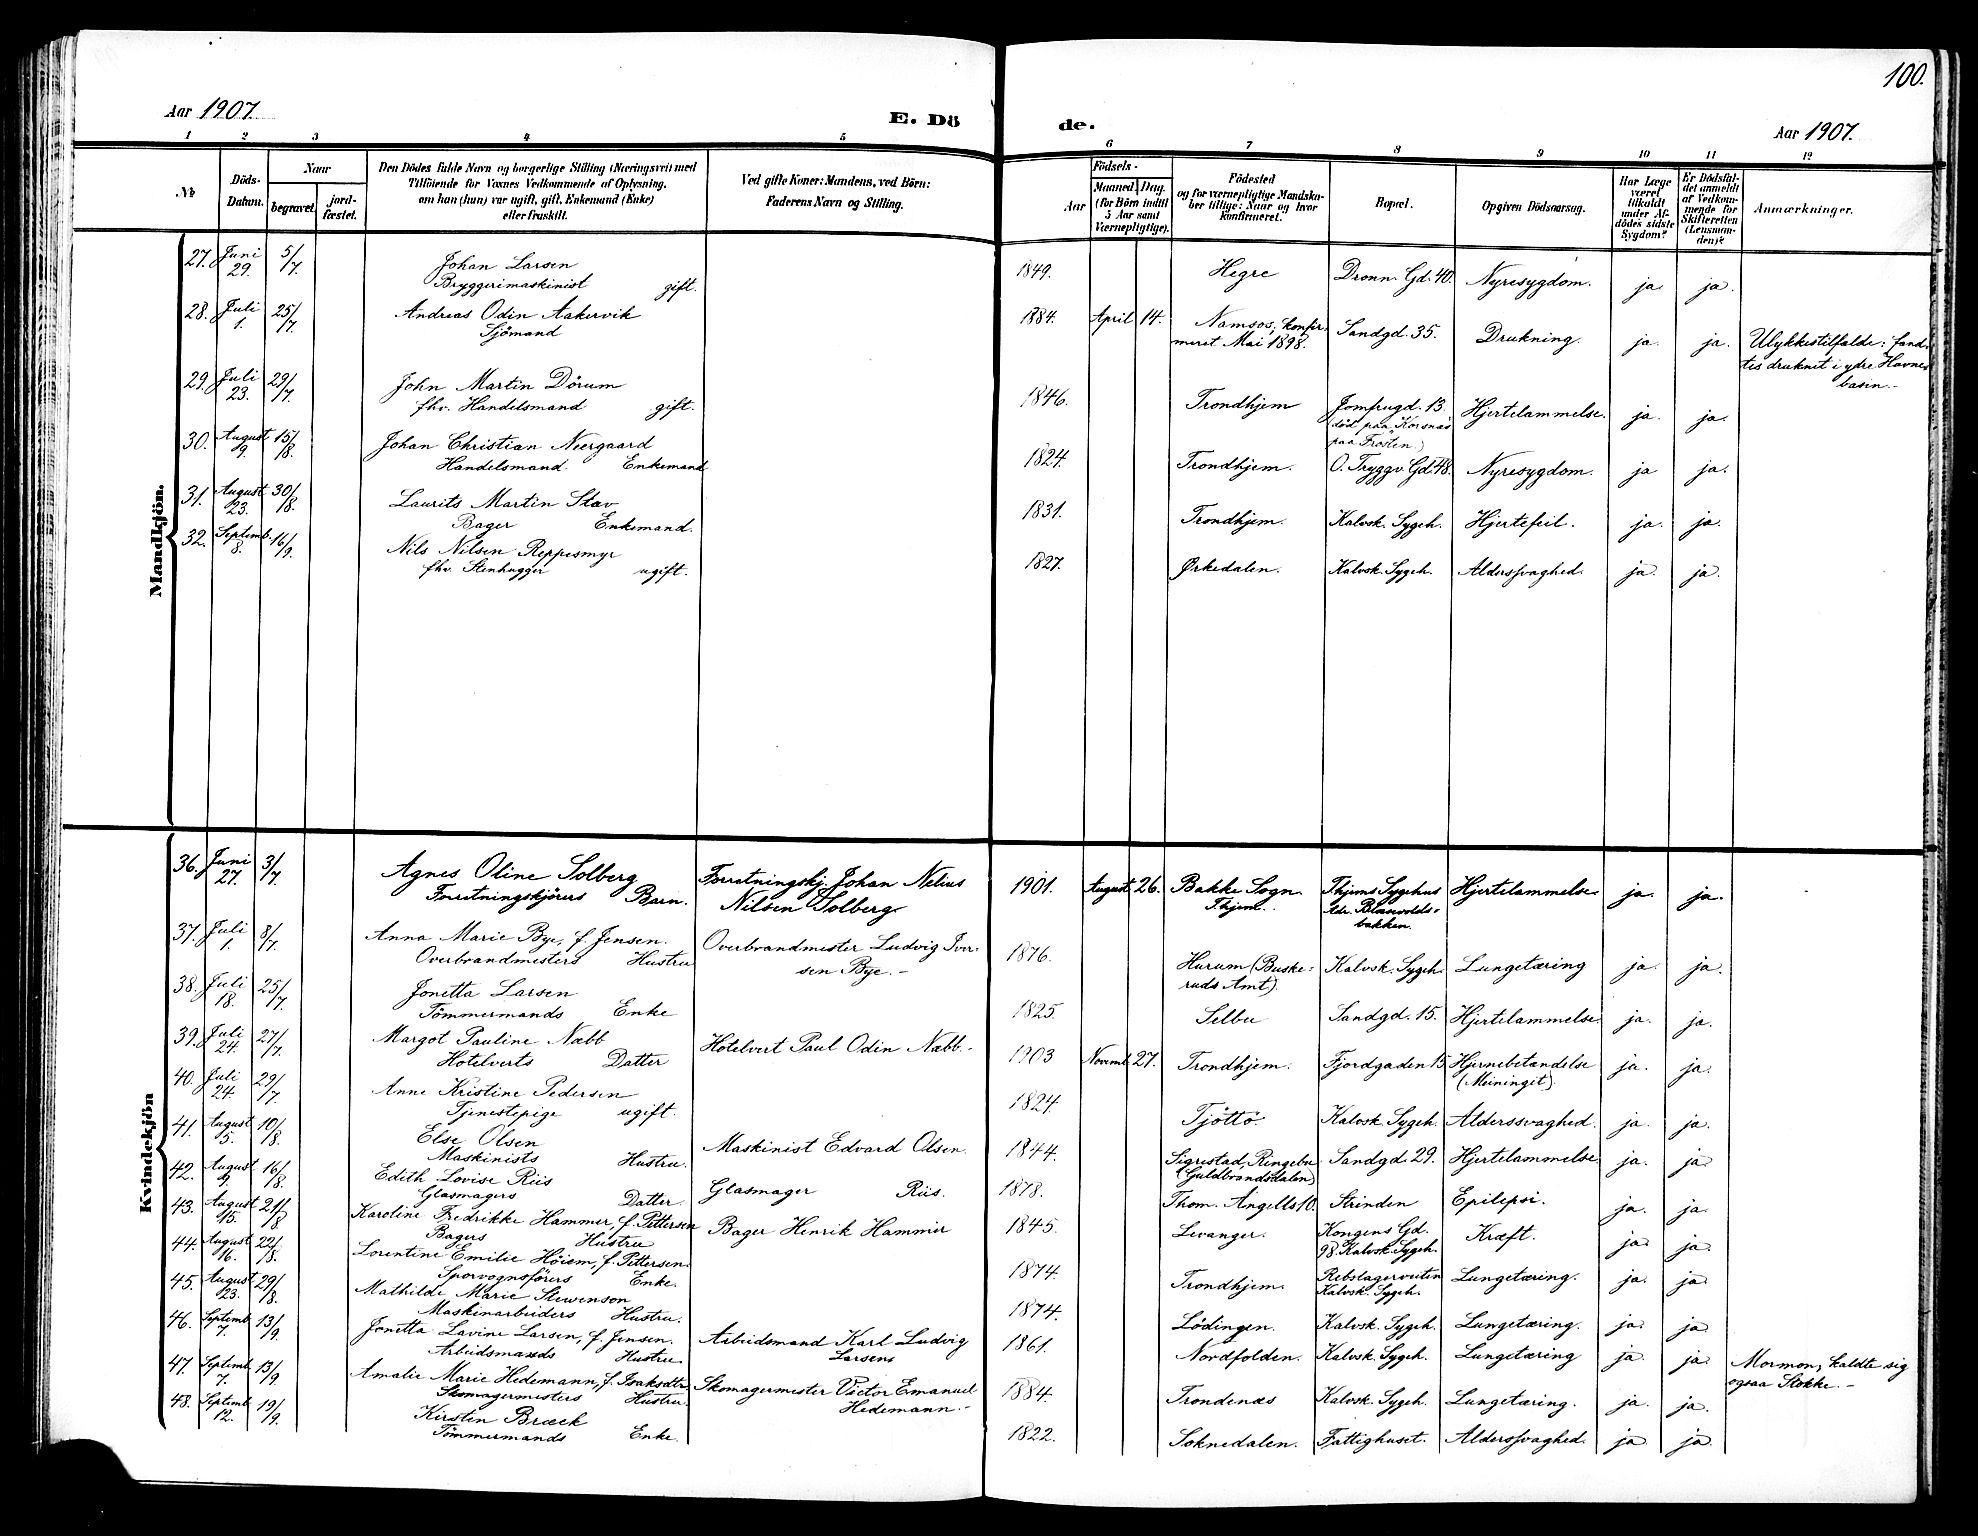 100.
Aar 1907.
E. Dö
de.
Aar 1907.
1 2 3 4 5 6 7 8 9 10 11 12
No
Döds-Datum.
Naar
begravet.
jordfæstet.
Den Dödes fulde Navn og borgerlige Stilling (Næringsvei) med
Tilföiende for Voxnes Vedkommende af Oplysning,
om han (hun) var ugift, gift, Enkemand (Enke)
eller fraskilt.
Ved gifte Koner: Mandens, ved Börn:
Faderens Navn og Stilling.
Födsels-
Aar
Maaned. Dag.
(for Börn indtil
5 Aar samt
Værnepligtige).
Födested
og for værnepligtige Mandska-
ber tillige: Naar og hvor
Konfirmeret.
Bopæl.
Opgiven Dödsaarsag.
Har Læge
været
tilkaldt
under Af-
dödes sidste
Sygdom?
Er Dödsfal-
det anmeldt
af Vedkom-
mende for
Skifteretten
(Lensman-
den)?
Anmærkninger.
Mandkjön.
27. Juni 29. 5/7. Johan Larsen 1849. Hegre Dronn. Gd. 40. Nyresygdom. ja ja.
Bryggerimaskinist gift.
28. Juli 1. 25/7 Andreas Odin Aakervik 1884. April 14. Namsos; konfir- Sandgd. 35. Drukning. ja. ja. Ulykkestilfælde: fand-
Sjömand meret Mai 1898. tes druknet i ydre Havne-
basin.-
29. Juli 23. 29/7. John Martin Dörum 1846. Trondhjem Jomfrugd. 13. Hjertelammelse. ja. ja.
fhv. Handelsmand gift. (död paa "Korsnæs
paa Frosten.)
30. August 9. 15/8. Johan Christian Neergaard 1824. Trondhjem. O. Tryggv. Gd. 48. Nyresygdom. ja ja.
Handelsmand. Enkemand
31. August 23. 30/8. Laurits Martin Stav 1831. Trondhjem. Kalvsk. Sygeh. Hjertefeil. ja. ja.
Bager Enkemand.
32. Septemb. 8. 16/9. Nils Nilsen Reppesmyr 1827. Ørkedalen. Kalvsk. Sygeh. Alderssvaghed. ja. ja.
fhv. Stenhugger ugift.
Kvindekjön
36. Juni 27. 3/7 Agnes Oline Solberg Forretningskj. Johan Nelius 1901. August 26. Bakke Sogn. Thjems Sygehus Hjertelammelse ja. ja.
Forretningskjörers Barn. Nilsen Solberg. Thjem. Adr. Blæsevolds-
bakken.
37. Juli 1. 8/7. Anna Marie Bye, f. Jensen. Overbrandmester Ludvig Iver- 1876. Hurum (Buske- Kalvsk. Sygeh. Lungetæring ja. ja.
Overbrandmesters Hustru sen Bye.- ruds Amt).
38. Juli 18. 25/7. Jonetta Larsen 1825. Selbu Sandgd. 15. Hjertelammelse. ja. ja.
Tömmermands Enke
39. Juli 24. 27/7. Margot Pauline Næbb Hotelvert Paul Odin Næbb.- 1903 Novemb. 27. Trondhjem. Fjordgaden 15 Hjernebetændelse ja. ja.
Hotelverts Datter (Meiningit).
40. Juli 24. 29/7. Anne Kristine Pedersen 1824. Tjöttö. Kalvsk. Sygeh. Alderssvaghed. ja. ja.
Tjenestepige ugift.
41. August 5. 10/8. Else Olsen Maskinist Edvard Olsen. 1844. Sigrestad, Ringebu Sandgd. 29. Hjertelammelse. ja. ja
Maskinists Hustru. (Guldbrandsdalen)
42. August 9. 16/8. Edith Lovise Riis Glasmager Riis. 1878. Thom. Angells 10. Strinden Epilepsi. ja. ja.
Glasmagers Datter.
43. August 15. 21/8 Karoline Fredrikke Hammer, f. Pettersen Bager Henrik Hammer 1845. Levanger. Kongens Gd. Kræft. ja ja.
Bagers Hustru 98. Kalvsk. Sygeh.
44. August 16. 22/8. Lorentine Emilie Höiem, f. Pettersen. 1874. Trondhjem. Rebslagerveiten Lungetæring. ja. ja
Sporvognsförers Enke. Kalvsk. Sygeh.
45. August 23. 29/8. Mathilde Marie Stewenson 1874. Lödingen. Kalvsk. Sygeh. Lungetæring. ja. ja
Maskinarbeiders Hustru.
46. Septemb. 7. 13/9. Jonetta Lavine Larsen, f. Jensen. Arbeidsmand Karl Ludvig 1861. Nordfolden. Kalvsk. Sygeh. Lungetæring ja. ja Mormon, kaldte sig
Arbeidsmands Hustru Larsens ogsaa Stokke.-
47. Septemb. 7. 13/9 Amalie Marie Hedemann, f. Isaksdtr. Skomagermester Victor Emanuel 1884. Trondenæs Kalvsk. Sygeh. Lungetæring. ja. ja.
Skomagermesters Hustru. Hedemann.-
48. Septemb. 12. 19/9. Kirsten Bræck 1822. Soknedalen. Fattighuset. Alderssvaghed. ja ja.
Tömmermands Enke.